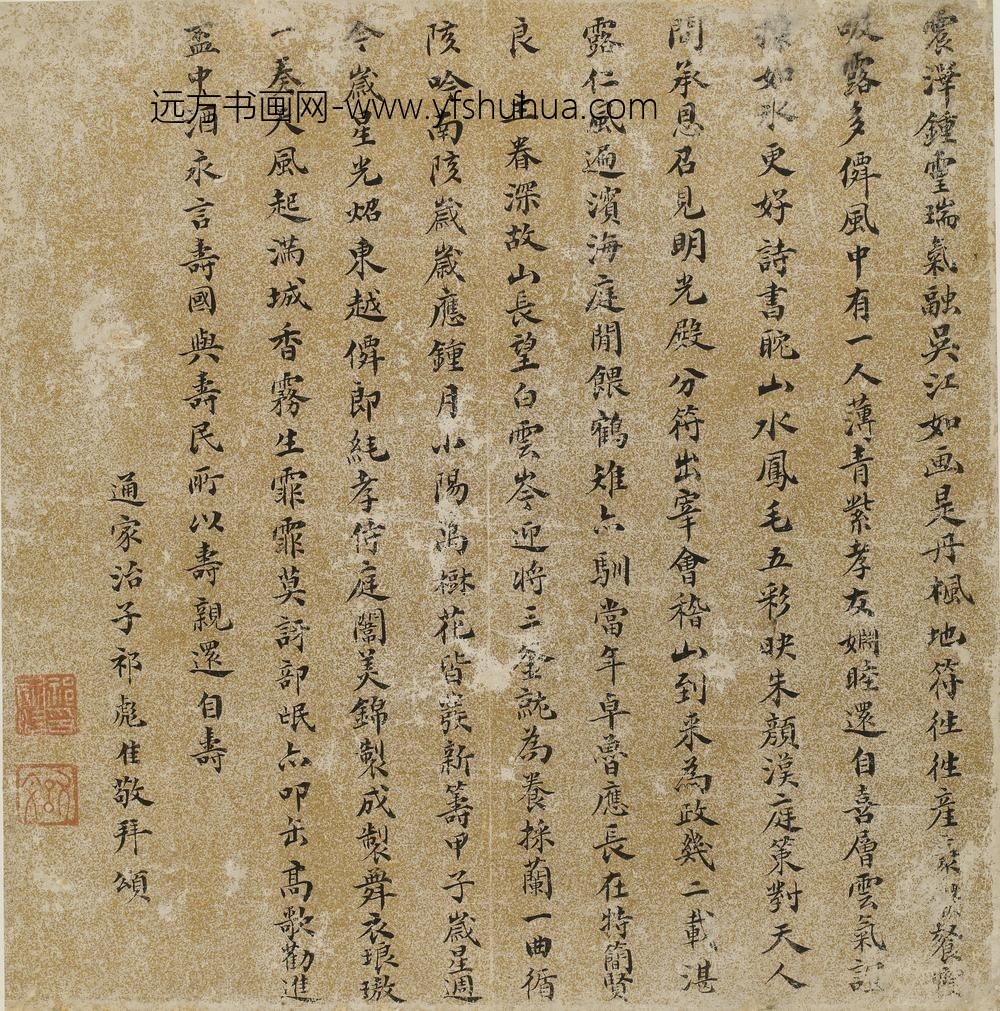 震澤鍾靈瑞氣融吳江如画是丹楓地符徃徃産餐
吸露多僊風中有一人薄青紫孝友婣睦還自喜層雲氣
操如氷更好詩書耽山水鳳毛五彩映朱顔漢庭策對天人
間承恩召見明光殿分符出宰會稽山到来為政幾二載湛
露仁風遍濱海庭閒餵鶴雉亦馴當年卓魯應長在特簡賢
良主眷深故山長望白雲岑迎将三釜就為養採蘭一曲循
陔吟南陔歲歲應鍾月小陽萬樹花皆發新籌甲子歲星週
今歲星光炤東越僊郎純孝侍庭闈美錦製成製舞衣琅璈
一奏天風起滿城香霧生霏霏莫訝部氓亦叩缶髙歌勸進
盃中酒永言壽國與壽民所以壽親還自壽
通家治子祁彪佳敬拜頌
远方书画网-www.yfshuhua.com